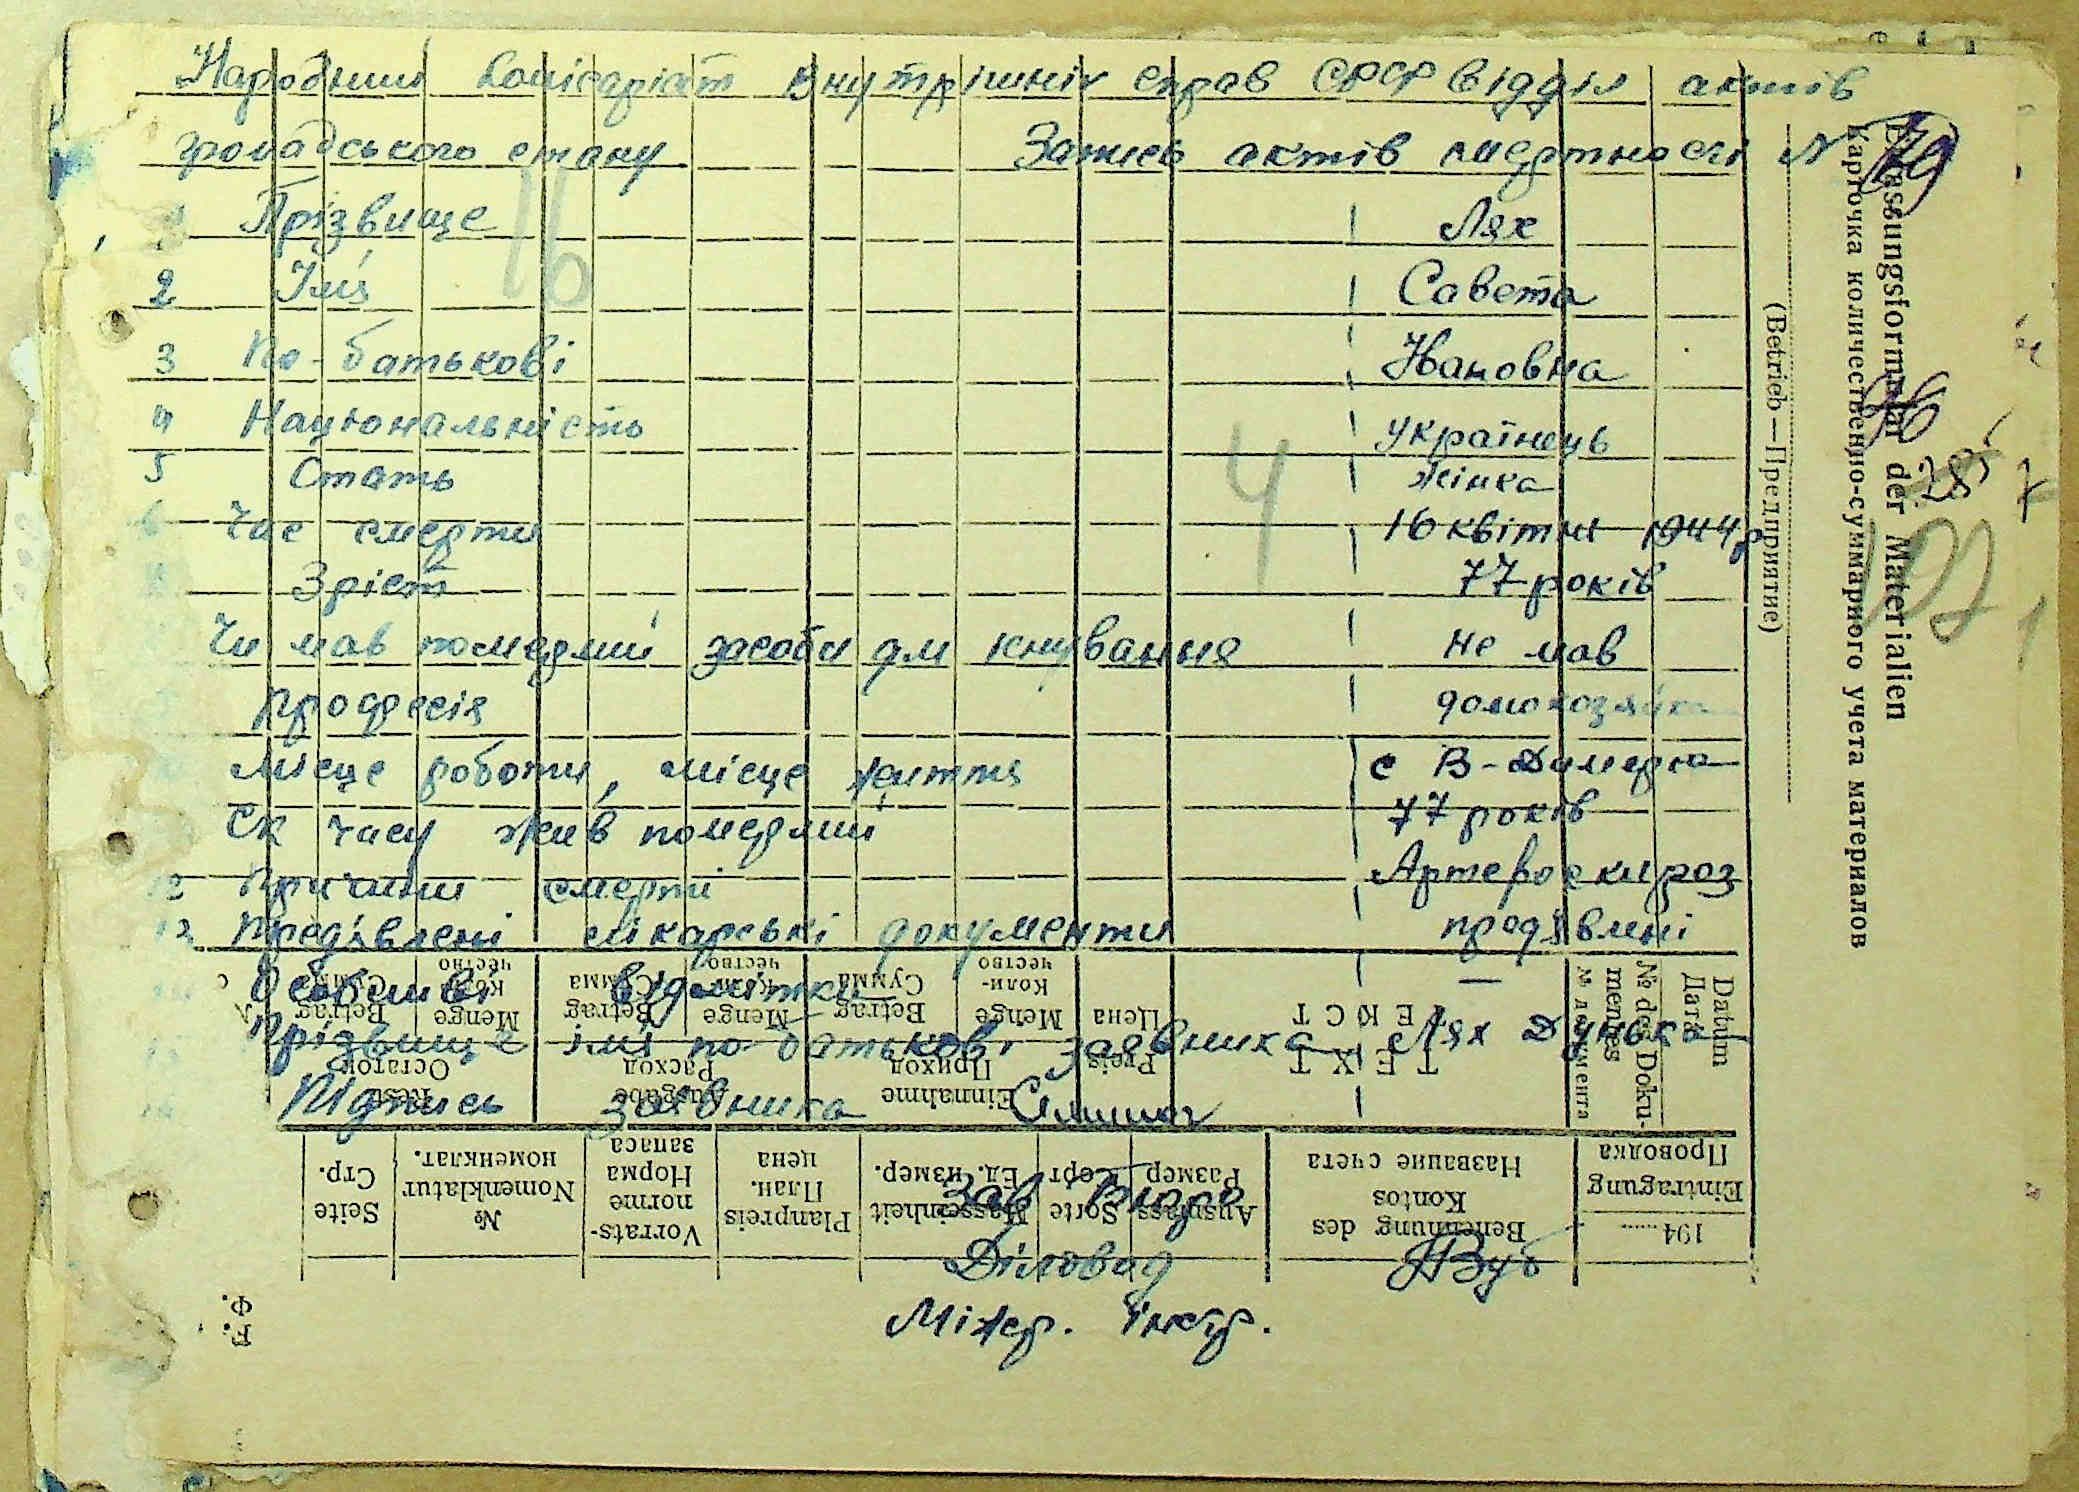 Народний комісаріят внутрішніх справ СРСР відділ актів
громадського стану Запись актів смертності N 79
Прізвище Лях
2 Імя Савета
3 По-батькові Івановна
4 Національність українець
5 Стать жінка
6 Час смерти 16 квітня 1944 р
Зріст 77 років
Чи мав померлий засоби для існування не мав
Професія домохозяйка
Місце роботи, місце життя с В-Димерка
Ск часу жив померлий 77 років
12 Причини смерті Артеросклроз
13 Предявлені лікарські документи предявлені
Особливі відмітки —
Прізвище імя по батькові заявника Лях Дунька
Підпись заявника
Зав Бюро
Діловод
Міжр. інстр.
16
4
28
7
1
Erfassungsformular der Materialien
Карточка количественно-суммарного учета материалов
(Betrieb—Предприятие)
Datum
Дата
№ des Doku-
mentes
№ документа
TEXT
ТЕКСТ
Preis
Цена
Einnahme
Приход
Menge
Коли-
чество
Betrag
Сумма
Ausgabe
Расход
Menge
Коли-
чество
Betrag
Сумма
Rest
Остаток
Menge
Коли-
чество
Betrag
Сумма
194......
Eintragung
Проводка
Benennung des
Kontos
Название счета
Ausmass
Размер
Sorte
Сорт
Masseinheit
Ед. измер.
Planpreis
План.
цена
Vorrats-
norme
Норма
запаса
№
Nomenklatur
номенклат.
Seite
Стр.
F.
Ф.